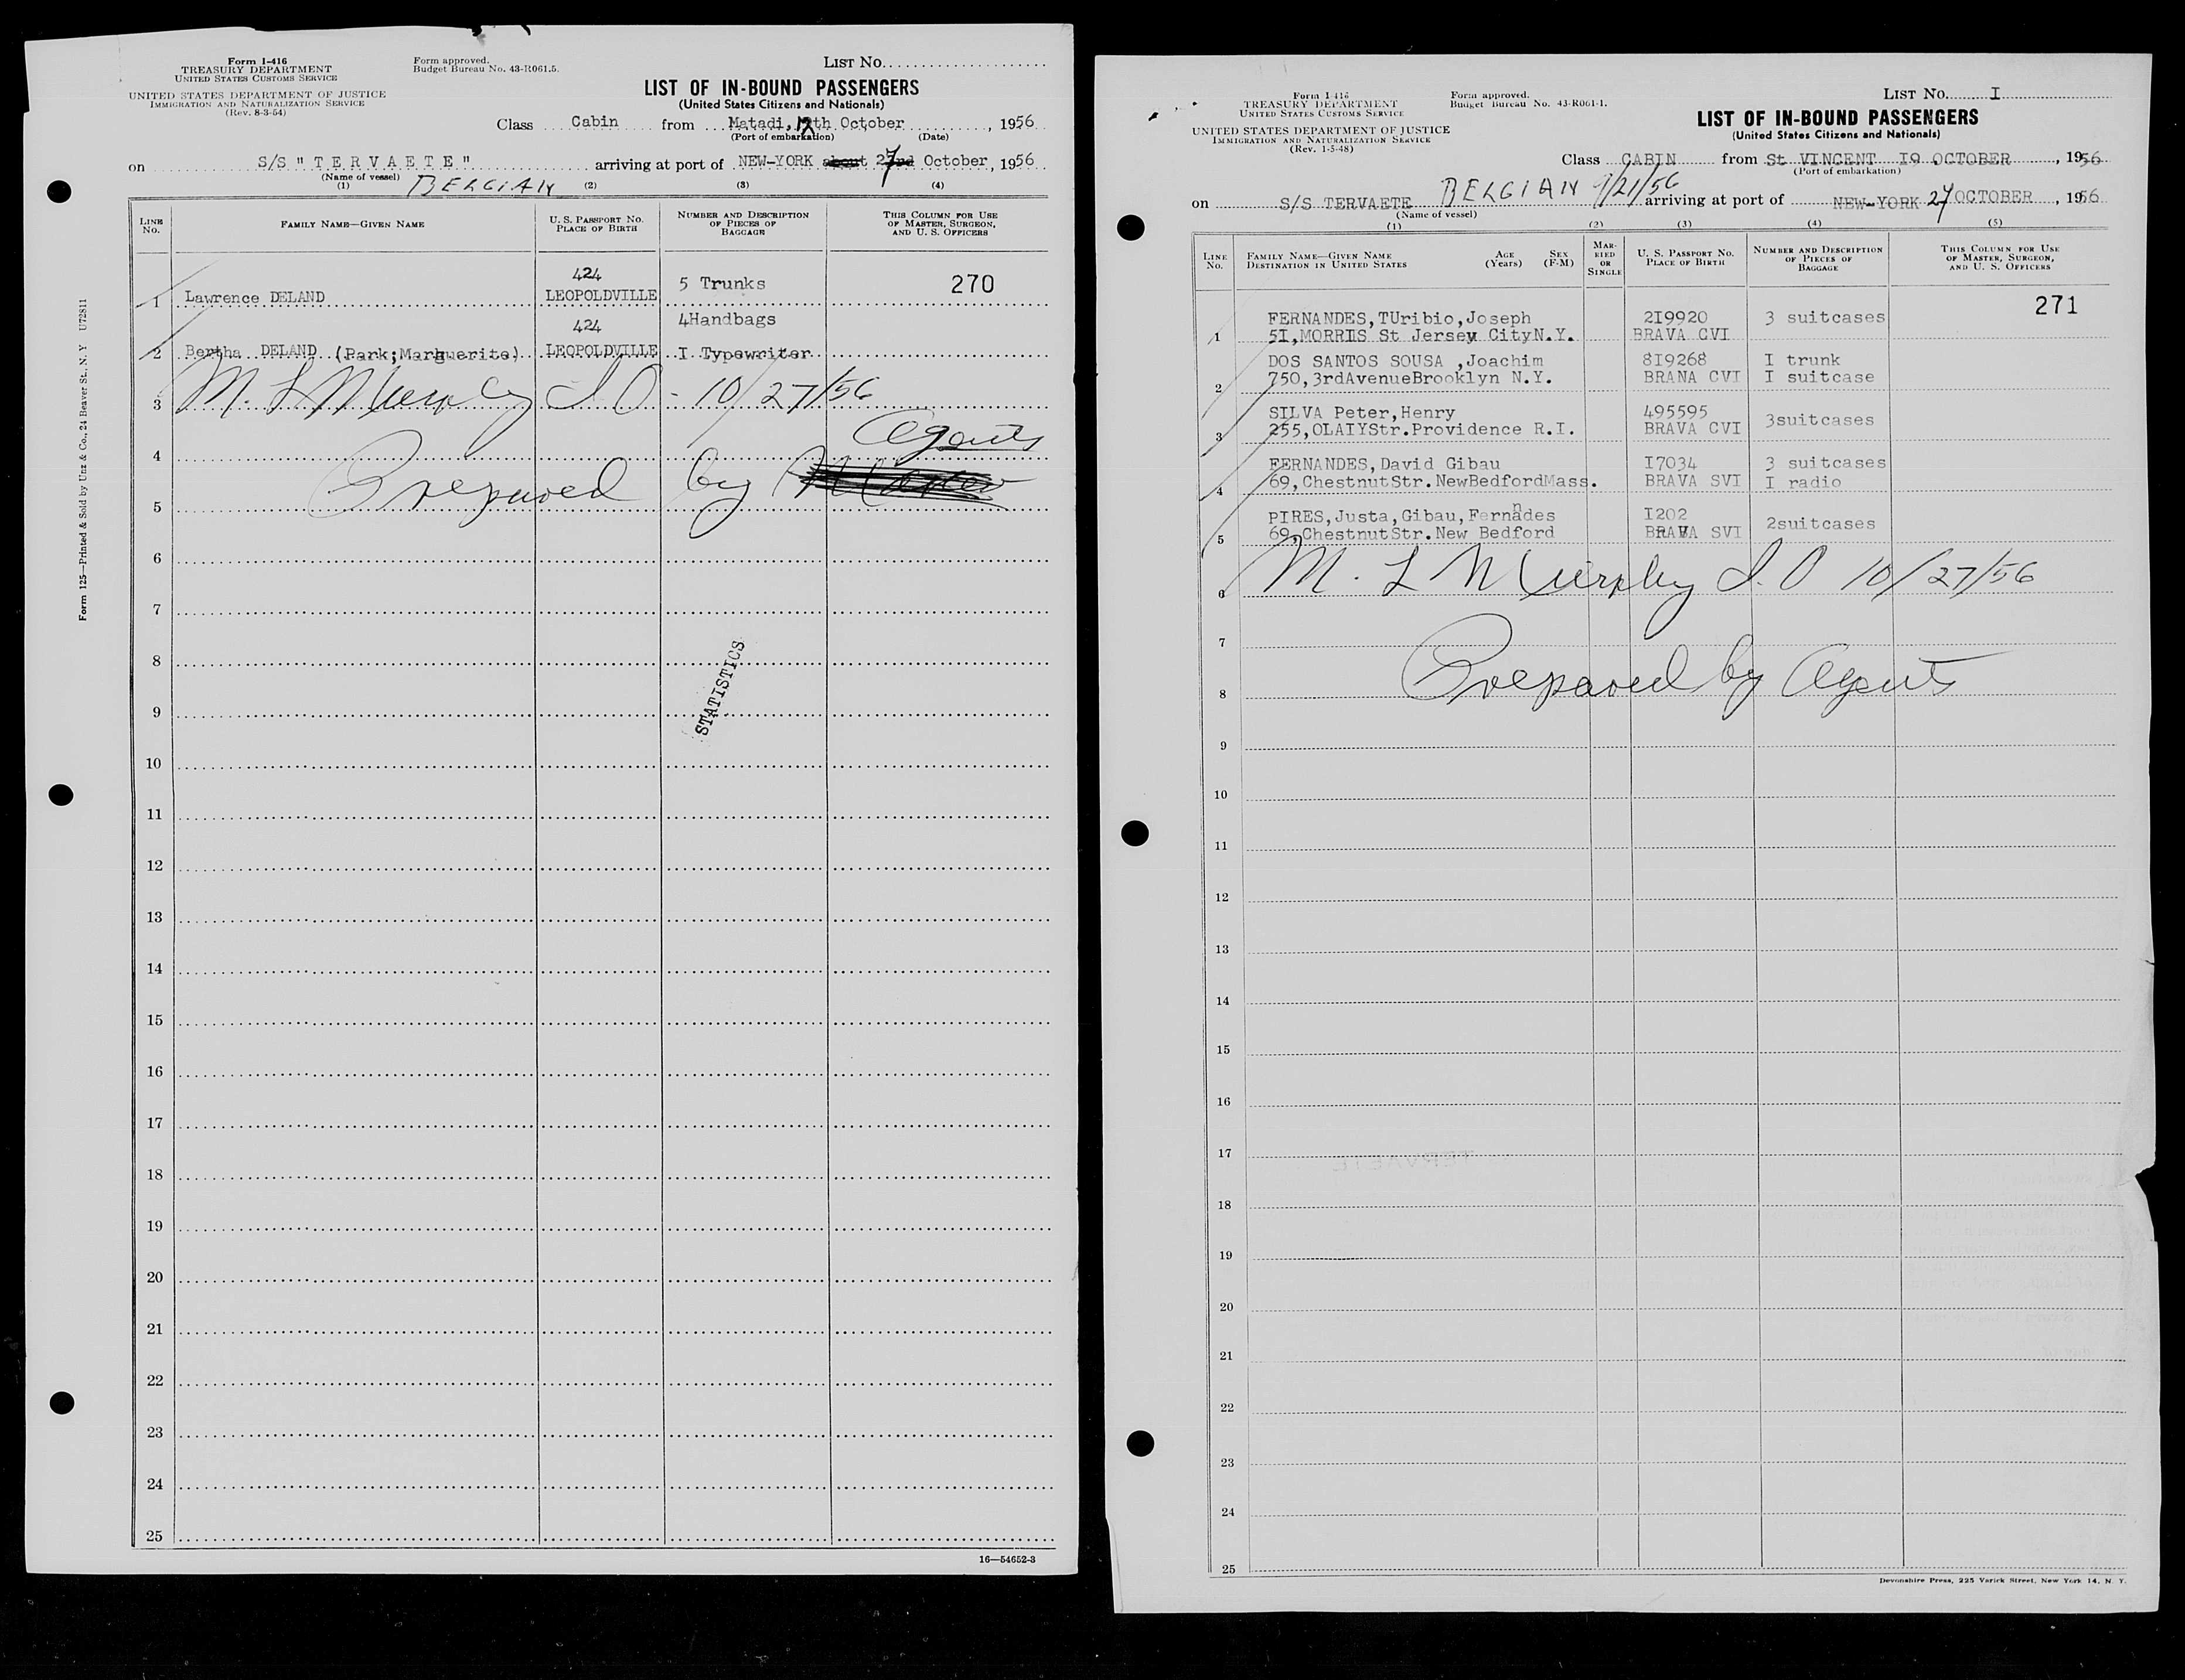 Form I-416
TREASURY DEPARTMENT
UNITED STATES CUSTOMS SERVICE
UNITED STATES DEPARTMENT OF JUSTICE
IMMIGRATION AND NATURALIZATION SERVICE
(Rev. 8-3-54)
Form approved.
Budget Bureau No. 43-R061.5.
LIST No.
LIST OF IN-BOUND PASSENGERS
(United States Citizens and Nationals)
Class Cabin from Matadi, 12th October, 1956
(Port of embarkation) (Date)
on S/S "TERVAETE" arriving at port of NEW-YORK about 27 October, 1956
(Name of vessel) BELGIAN
(1) (2) (3) (4)
LINE No. FAMILY NAME—GIVEN NAME U. S. PASSPORT No. PLACE OF BIRTH NUMBER AND DESCRIPTION OF PIECES OF BAGGAGE THIS COLUMN FOR USE OF MASTER, SURGEON, AND U. S. OFFICERS
424 5 Trunks 270
1 Lawrence DELAND LEOPOLDVILLE
424 4Handbags
2 Bertha DELAND (Park;Marguerite) LEOPOLDVILLE I Typewriter
3 M. L Murphy I O - 10/27/56
4 Agents
5 Prepared by
6
7
8
9
STATISTICS
10
11
12
13
14
15
16
17
18
19
20
21
22
23
24
25
16—54652-3
Form 125—Printed & Sold by Unz & Co., 24 Beaver St., N. Y U72811
Form I-416
TREASURY DEPARTMENT
UNITED STATES CUSTOMS SERVICE
UNITED STATES DEPARTMENT OF JUSTICE
IMMIGRATION AND NATURALIZATION SERVICE
(Rev. 1-5-48)
Form approved.
Budget Bureau No. 43-R061-1.
LIST No. I
LIST OF IN-BOUND PASSENGERS
(United States Citizens and Nationals)
Class CABIN from St VINCENT I9 OCTOBER, 1956
(Port of embarkation)
on S/S TERVAETE BELGIAN 9/21/56 arriving at port of NEW-YORK 27 OCTOBER, 1956
(Name of vessel)
(1) (2) (3) (4) (5)
LINE No. FAMILY NAME—GIVEN NAME DESTINATION IN UNITED STATES AGE (Years) SEX (F-M) MARRIED OR SINGLE U. S. PASSPORT No. PLACE OF BIRTH NUMBER AND DESCRIPTION OF PIECES OF BAGGAGE THIS COLUMN FOR USE OF MASTER, SURGEON, AND U. S. OFFICERS
271
FERNANDES,TUribio,Joseph 2I9920 3 suitcases
1 5I,MORRIS St Jersey CityN.Y. BRAVA CVI
DOS SANTOS SOUSA ,Joachim 8I9268 I trunk
2 750,3rdAvenueBrooklyn N.Y. BRANA CVI I suitcase
SILVA Peter,Henry 495595 3suitcases
3 255,OLAIYStr.Providence R.I. BRAVA CVI
FERNANDES,David Gibau I7034 3 suitcases
4 69,ChestnutStr.NewBedfordMass. BRAVA SVI I radio
PIRES,Justa,Gibau,Fernandes I202 2suitcases
5 69,ChestnutStr.New Bedford BRAVA SVI
6 M. L Murphy I. O 10/27/56
7
8 Prepared by Agents
9
10
11
12
13
14
15
16
17
18
19
20
21
22
23
24
25
Devonshire Press, 225 Varick Street, New York 14, N. Y.